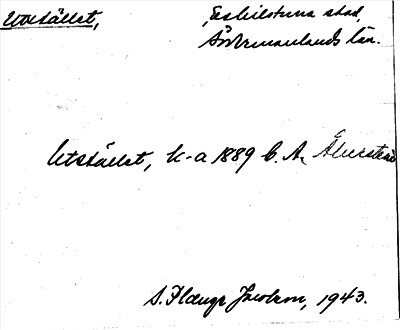 Utstället,
Eskilstuna stad,
Södermanlands län.
Utstället, k-a 1889 b. A.
S. Plange Jacobson, 1943.